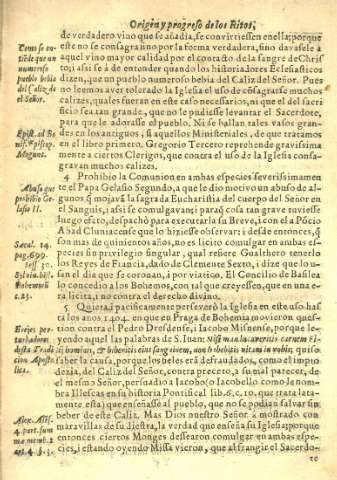 Origen y progreso de los Ritos,
de verdadero vino que se añadia, se convirtiessen en ella; porque
este no se consagraua por la forma verdadera, sino dauasele a
aquel vino mayor calidad por el contacto de la sangre de Christo;
assi se á de entender quando los historiadores Eclesiasticos
dizen, que un pueblo numeroso bebia del Caliz del Señor. Pues
no leemos aver tolerado la Iglesia el uso de cõsagrarse muchos
calizes, quales fueran en este caso necessarios, ni que el del sacrificio
sea tan grande, que no le pudiesse levantar el Sacerdote,
para que le adorasse el pueblo. Ni se hallan tales vasos grandes
en los antiguos, si aquellos Ministeriales, de que tratamos
en el libro primero. Gregorio Tercero reprehende gravissimamente
a ciertos Clerigos, que contra el uso de la Iglesia consagravan
muchos calizes.
4 Prohibio la Comunion en ambas especies severissimamente
el Papa Gelasio Segundo, a que le dio motivo un abuso de algunos
q̃ mojavã la sagrada Eucharistia del cuerpo del Señor en
el Sanguis, i assi se comulgavan: i paraq̃ cosa tan grave tuviesse
luego efeto, despachò para executarla su Breve, i con el a Põcio
Abad Cluniacense que lo hiziesse observar: i desde entonces, q̃
son mas de quinientos años, no es licito comulgar en ambas especies
sin privilegio singular, qual refiere Gualthero tenerla
los Reyes de Francia, dado de Clemente Sexto, i dize que lo usan
el dia que se coronan, i por viatico. El Concilio de Basilea
lo concedio a los Bohemos, con tal que creyessen, que en una era
licita, i no contra el derecho divino.
5 Quieta, i pacificamente perseverò la Iglesia en este uso hasta
los años 1404. en que en Praga de Bohemia movieron question
contra el Pedro Dresdense, i Iacobo Misnense, porque leyendo
aquellas palabras de S. Iuan: Nisi manducaveritis carnem Filij
hominis, & biberitis eius sanguinem, non habebitis vitam in vobis; quisieron
saber la causa, porque los fieles erã defraudados, como el impio
dezia, del Caliz del Señor, contra precepto, a su mal parecer, del
mesmo Señor, persuadio a Iacobo (o Iacobello como le nombra
Illescas en su historia Pontifical lib. 6. c. 10. que trata latamente
esta) que enseñasse al pueblo, que no se podian salvar sin
beber de este Caliz. Mas Dios nuestro Señor à mostrado con
maravillas de su diestra, la verdad que enseña su Iglesia; porque
entonces ciertos Monges desearon comulgar en ambas especies,
i estando oyendo Missa vieron, que al frangir el Sacerdo-
Como se entiẽde que un
numeroso
pueblo bebia
del Caliz de
el Señor.
Epist. ad Bonif.
Episcop.
Mogunt.
Abuso que
prohibio Gelasio
II.
Sæcul. 14.
pag. 699.
sess. 30.
Sylvio hist.
Bohemor.
c. 35.
Erejes perturbadores
desta Tradicion
Apostolica.
Alex. Ales.
4. part. sum